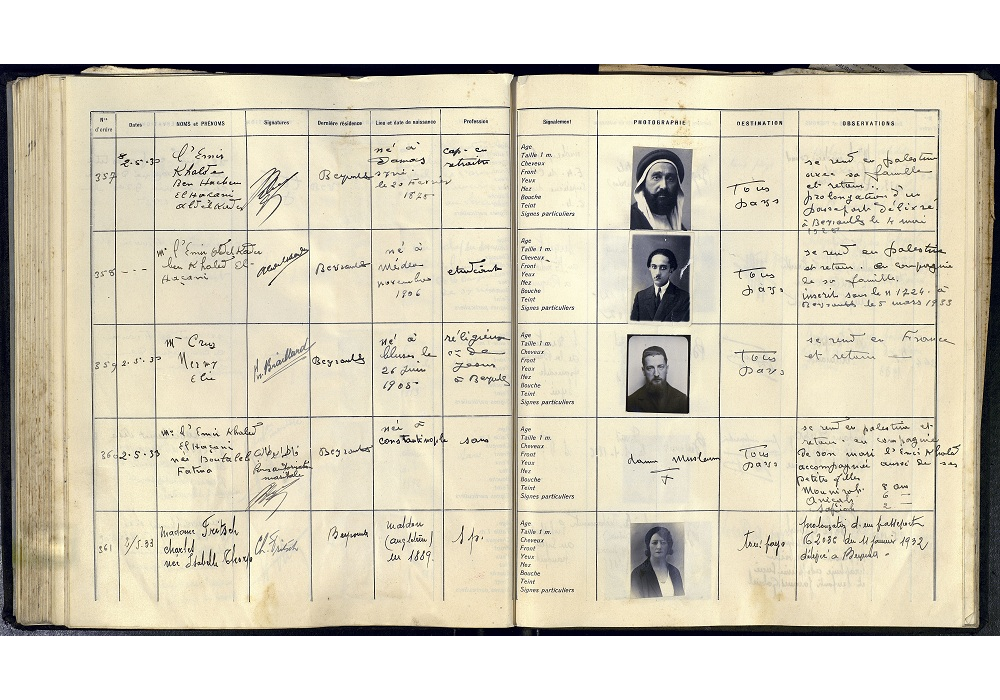 Nos d'ordre
Dates
NOMS et PRÉNOMS
Signatures
Dernière résidence
Lieu et date de naissance
Profession
Signalement
PHOTOGRAPHIE
DESTINATION
OBSERVATIONS
357
2.5.33
l'Emir
Khaled
Ben Hachem
El Hacani
Abd el Kader
Beyrouth
né à
Damas
Syrie
le 20 Fevrier
cap. en
retraite
Age
Taille 1 m.
Cheveux
Front
Yeux
Nez
Bouche
Teint
Signes particuliers
Tous
pays
se rend en palestine
avec sa famille
et retour.
prolongation d'un
passeport délivré
à Beyrouth le 4 mai
358
- - -
Mr l'Emir Abdel Kader
ben Khaled El-
Haçani
Beyrouth
né à
Médéa
novembre
1906
etudiant
Age
Taille 1 m.
Cheveux
Front
Yeux
Nez
Bouche
Teint
Signes particuliers
Tous
pays
se rend en palestine
et retour. en compagnie
de sa famille.
inscrit sous le n 1224. à
Beyrouth le 5 mars 1933
359
2.5.33
Mr
Elie
Braillard
Beyrouth
né à
Cluses le
26 juin
1905
réligieux
Jesus
à Beyrouth
Age
Taille 1 m.
Cheveux
Front
Yeux
Nez
Bouche
Teint
Signes particuliers
Tous
pays
se rend en France
et retour
360
2.5.33
Me l'Emir Khaled
El Haçani
née Boutaleb
Fatma
Beyrouth
née à
constantinople
sans
Age
Taille 1 m.
Cheveux
Front
Yeux
Nez
Bouche
Teint
Signes particuliers
dame Musulmane
Tous
pays
se rend en palestine et
retour. en compagnie
de son mari l'Emir Khaled
accompagnée aussi de ses
petites filles
8 ans
6 —
2 —
361
2/5.33
Madame Fritsch
Charles
née Isabelle
Ch. Fritsch
Beyrouth
Maldon
(angleterre)
en 1889.
S. p.
Age
Taille 1 m.
Cheveux
Front
Yeux
Nez
Bouche
Teint
Signes particuliers
tous pays
Prolongation d'un passeport
du 11 Janvier 1932
délivré à Beyrouth.